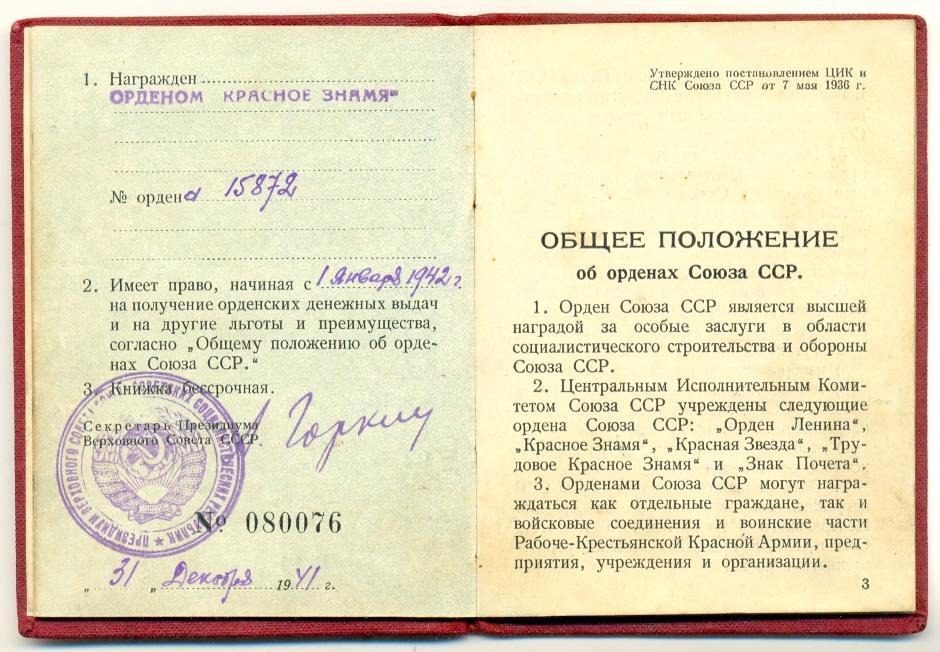 1. Награжден
ОРДЕНОМ „КРАСНОЕ ЗНАМЯ“
№ ордена 15872
2. Имеет право, начиная с 1 Января 1942 г.
на получение орденских денежных выдач
и на другие льготы и преимущества,
согласно „Общему положению об орде-
нах Союза ССР.“
3. Книжка бессрочная.
Секретарь Президиума
Верховного Совета СССР.
Горкин
ПРЕЗИДИУМ ВЕРХОВНОГО СОВЕТА СОЮЗА СОВЕТСКИХ СОЦИАЛИСТИЧЕСКИХ РЕСПУБЛИК
№ 080076
„ 31 „ Декабря 1941 г.
Утверждено постановлением ЦИК и
СНК Союза ССР от 7 мая 1936 г.
ОБЩЕЕ ПОЛОЖЕНИЕ
об орденах Союза ССР.
1. Орден Союза ССР является высшей
наградой за особые заслуги в области
социалистического строительства и обороны
Союза ССР.
2. Центральным Исполнительным Коми-
тетом Союза ССР учреждены следующие
ордена Союза ССР: „Орден Ленина“,
„Красное Знамя“, „Красная Звезда“, „Тру-
довое Красное Знамя“ и „Знак Почета“.
3. Орденами Союза ССР могут награ-
ждаться как отдельные граждане, так и
войсковые соединения и воинские части
Рабоче-Крестьянской Красной Армии, пред-
приятия, учреждения и организации.
3